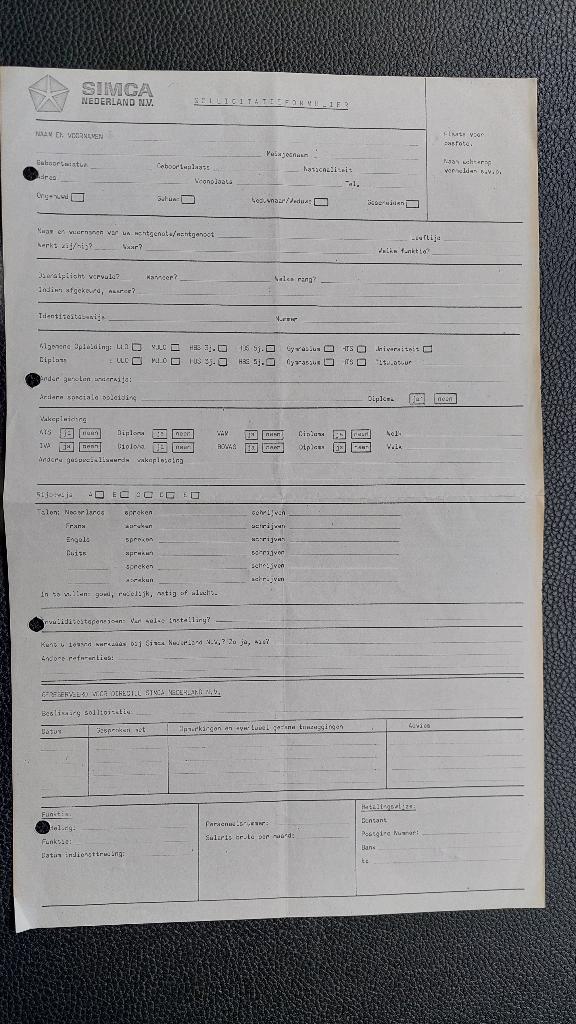 SIMCA
NEDERLAND N.V.
SOLLICITATIEFORMULIER
Plaats voor
pasfoto.
Naam achterop
vermelden s.v.p.
NAAM EN VOORNAMEN
Meisjesnaam
Geboortedatum Geboorteplaats Nationaliteit
Adres Woonplaats Tel.
Ongehuwd Gehuwd Weduwnaar/Weduwe Gescheiden
Naam en voornamen van uw echtgenote/echtgenoot Leeftijd
Werkt zij/hij? Waar? Welke funktie?
Dienstplicht vervuld? Wanneer? Welke rang?
Indien afgekeurd, waarom?
Identiteitsbewijs Nummer
Algemene Opleiding: ULO MULO HBS 3j. HBS 5j. Gymnasium HTS Universiteit
Diploma : ULO MULO HBS 3j. HBS 5j. Gymnasium HTS Titulatuur
Ander genoten onderwijs:
Andere speciale opleiding Diploma ja neen
Vakopleiding
ATS ja neen Diploma ja neen VAM ja neen Diploma ja neen Welk
IVA ja neen Diploma ja neen BOVAG ja neen Diploma ja neen Welk
Andere gespecialiseerde vakopleiding
Rijbewijs A B C D E
Talen: Nederlands spreken schrijven
Frans spreken schrijven
Engels spreken schrijven
Duits spreken schrijven
spreken schrijven
spreken schrijven
In te vullen: goed, redelijk, matig of slecht.
Invaliditeitspensioen: Van welke instelling?
Kent u iemand werkzaam bij Simca Nederland N.V.? Zo ja, wie?
Andere referenties:
GERESERVEERD VOOR DIRECTIE SIMCA NEDERLAND N.V.
Beslissing sollicitatie:
Datum Gesproken met Opmerkingen en eventueel gedane toezeggingen Advies
Funktie:
Afdeling:
Funktie:
Datum indiensttreding:
Personeelsnummer:
Salaris bruto per maand:
Betalingswijze:
Contant
Postgiro Nummer:
Bank
te